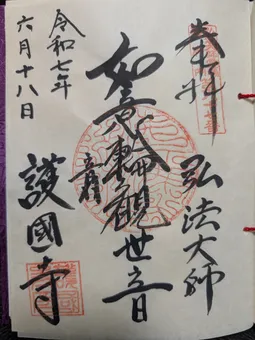 奉拝
弘法大師
如意輪觀世音
令和七年
六月十八日
音羽
護國寺